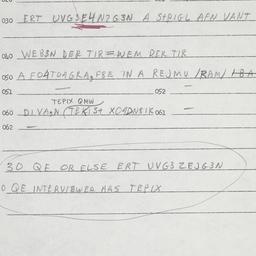 030 ERT UVG3E4NZG3N A STRIGL AFN VANT
040 WEB3N DER TIR=WEM DER TIR
050 A FOATOAGRA,F8E IN A REJMU /RAM/
051 — 052 —
TEPIX QMW
060 DI VA,N (TEKIST XOADN8IK 061 —
062 —
30 QE OR ELSE ERT UVG3ZEJG3N
0 QE INTERVIEWER HAS TEPIX